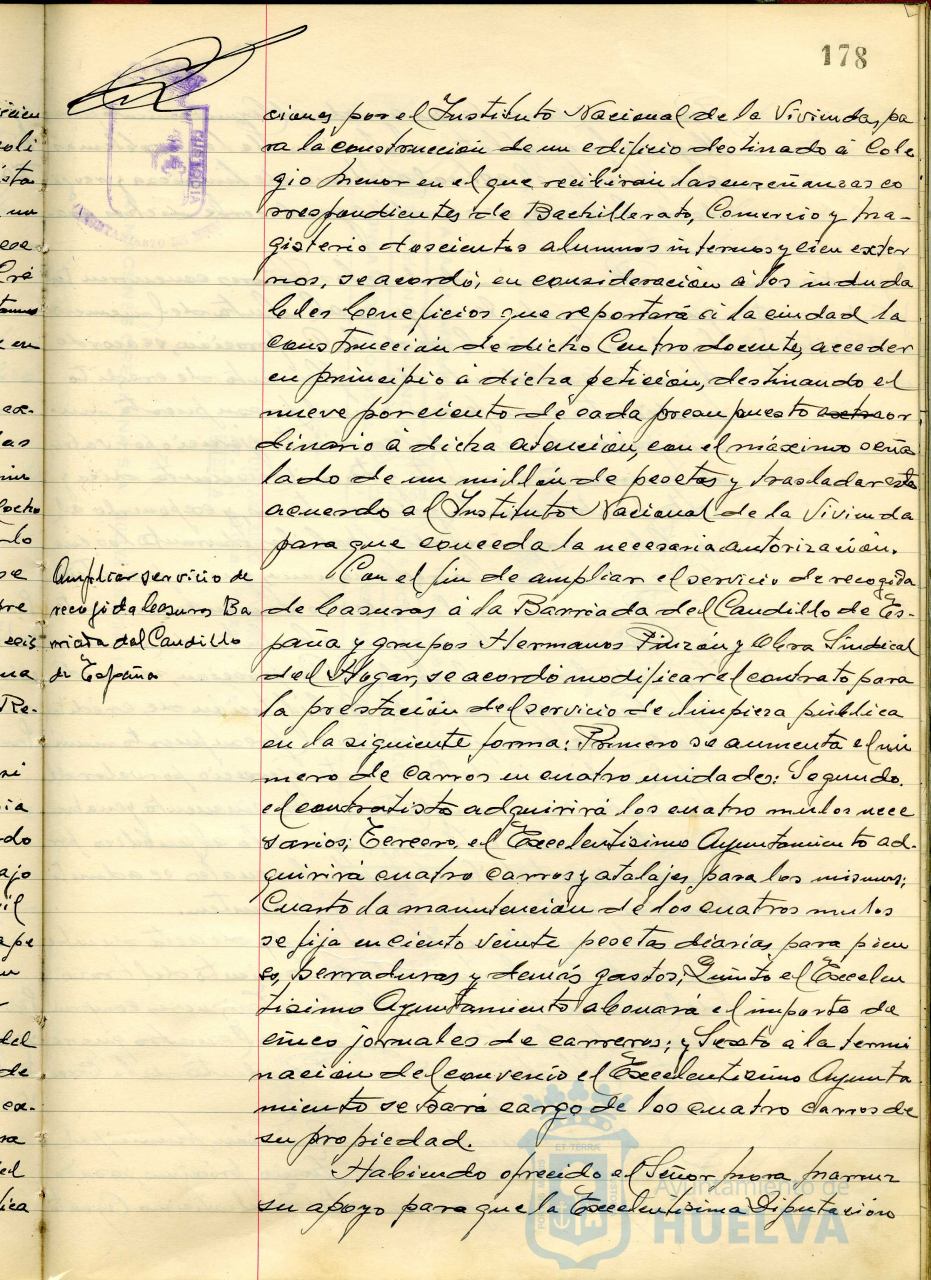 178
ciones por el Instituto Nacional de la Vivienda, pa
ra la construcción de un edificio destinado á Cole
gio Menor en el que recibirán las enseñanzas co
rrespondientes de Bachillerato, Comercio y Ma-
gisterio doscientos alumnos internos y cien exter
nos, se acordó, en consideración á los induda
bles beneficios que reportará á la ciudad la
construcción de dicho Centro docente, acceder
en principio á dicha petición, destinando el
nueve por ciento de cada presupuesto extraor
dinario á dicha atención, con el máximo seña
lado de un millón de pesetas y trasladar este
acuerdo al Instituto Nacional de la Vivienda
para que conceda la necesaria autorización.
Ampliar servicio de
recogida basuras Ba
rriada del Caudillo
de España
Con el fin de ampliar el servicio de recogida
de basuras á la Barriada del Caudillo de Es-
paña y grupos Hermanos Pinzón y Obra Sindical
del Hogar, se acordó modificar el contrato para
la prestación del servicio de limpieza pública
en la siguiente forma: Primero se aumenta el nú
mero de carros en cuatro unidades; Segundo.
el contratista adquirirá los cuatro mulos nece
sarios; Tercero, el Excelentísimo Ayuntamiento ad-
quirirá cuatro carros y atalajes para los mismos;
Cuarto la manutención de los cuatros mulos
se fija en ciento veinte pesetas diarias para pien
so, herraduras y demás gastos; Quinto el Excelen
tísimo Ayuntamiento abonará el importe de
cinco jornales de carreros; y Sexto á la termi
nación del convenio el Excelentísimo Ayunta
miento se hará cargo de los cuatro carros de
su propiedad.
Habiendo ofrecido el Señor Mora
su apoyo para que la Excelentísima Diputación
Ayuntamiento de
HUELVA